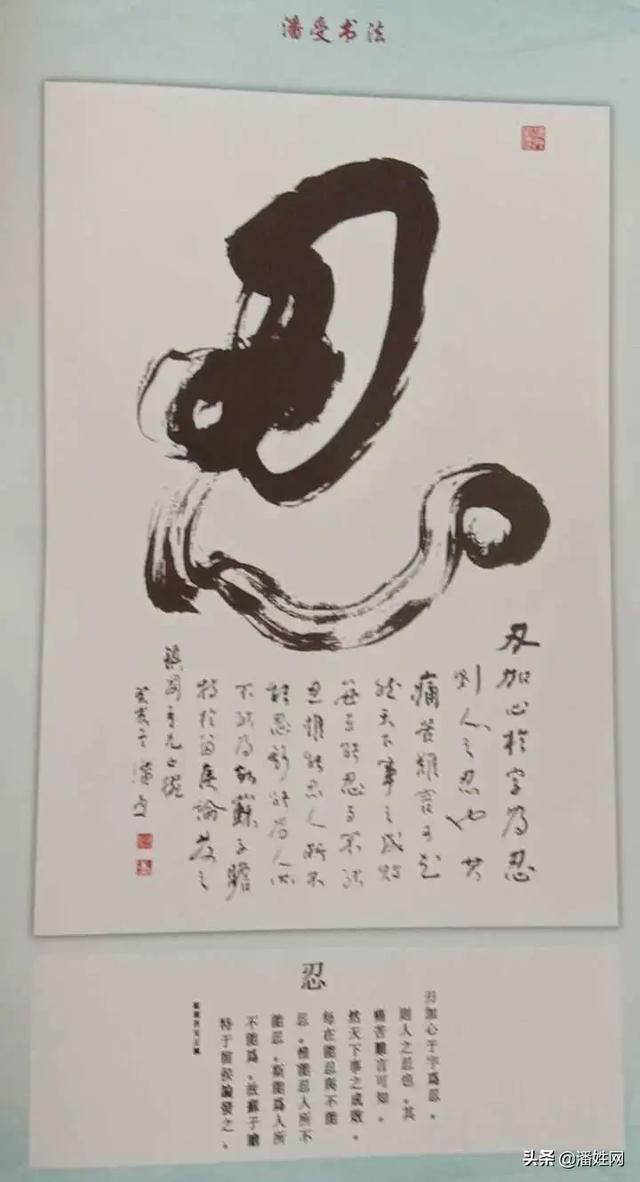 潘受书法
忍
刃加心於字為忍
則人之忍也其
痛苦難言可知
然天下事之成敗
每在能忍與不能
忍惟能忍人所不
能忍斯能為人所
不能為故蘇子瞻
特於留侯論發之
潘受
忍
刃加心于字爲忍，
則人之忍也，其
痛苦難言可知。
然天下事之成敗，
每在能忍與不能
忍，惟能忍人所不
能忍，斯能爲人所
不能爲，故蘇子瞻
特于留侯論發之。
头条 @潘姓网